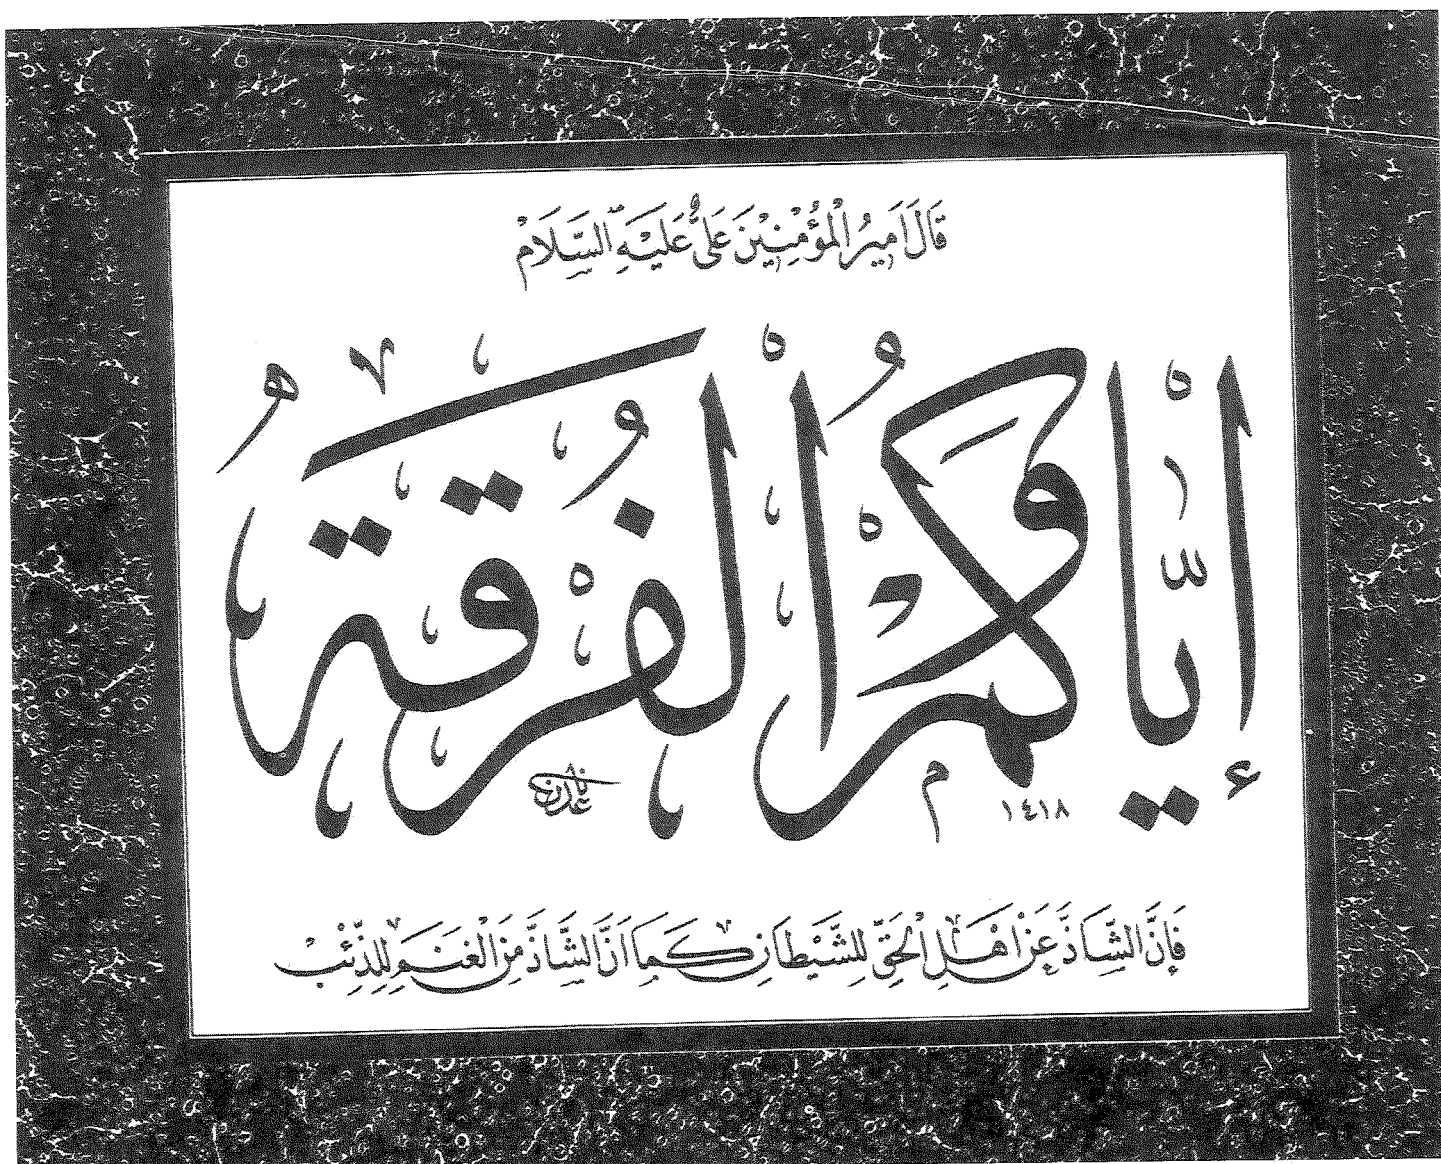 قَالَ اَمِيرُ الْمُؤْمِنِيْنَ عَلِىٌّ عَلَيْهِ السَّلَامْ
إِيَّاكُمْ وَالْفُرْقَةَ
١٤١٨
فَإِنَّ الشَّاذَّ عَنْ اَهْلِ الْحَقِّ لِلشَّيْطَانِ كَمَا اَنَّ الشَّاذَّ مِنَ الْغَنَمِ لِلذِّئْبْ